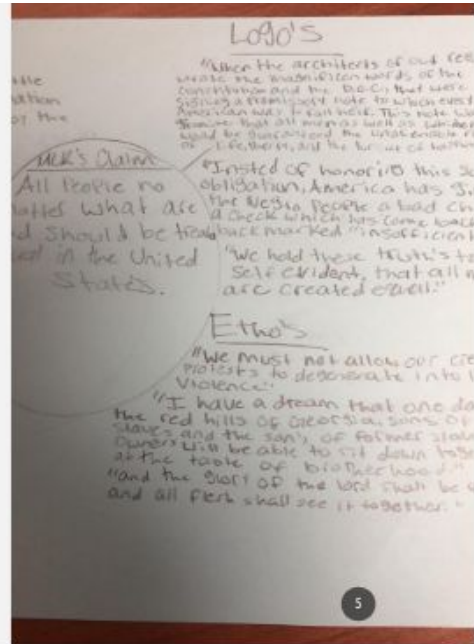 Logo's
"When the architects of our re
wrote the magnificen words of the
constitution and the D.O.C, that were
signing a promissory note to which ever
American was to fall heir. This note wa
that all men as well as
would be guaranteed the
of life, and the of
MLK's Claim
All People no
matter what are
d should be trea
ed in the United
States.
"Insted of honoring this s
obligation, America has
the Negro People a bad ch
a check which has come back
back marked "insufficien
"We hold these truth's t
self evident, that all
are created equal."
Etho's
"We must not allow our cre
Protests to degenerate into
Violence"
"I have a dream that one da
the red hills of Georgia, sons of
slaves and the son's, of former slave
owners will be able to sit down toge
at the table of brotherhood"
"and the glory of the lord shall be
and all flesh shall see it together."
5